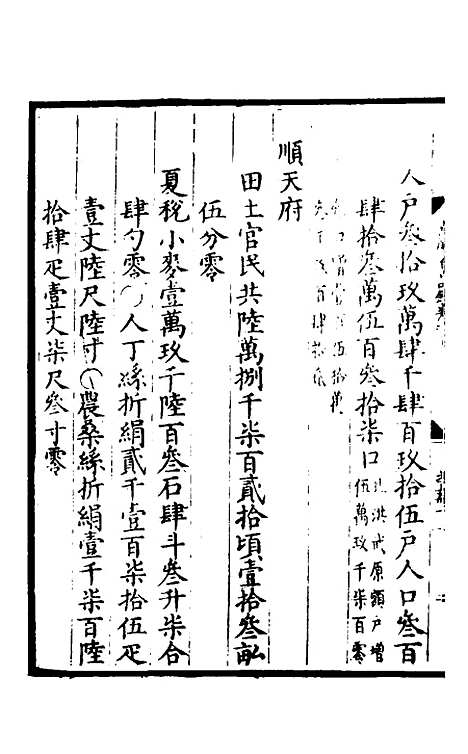 人戶叁拾玖萬肆千肆百玖拾伍戶人口叁百
肆拾叁萬伍百叁拾柒口 比洪武原額戶增伍萬玖千柒百零
順天府
田土官民共陸萬捌千柒百貳拾頃壹拾叁畝
伍分零
夏稅小麥壹萬玖千陸百叁石肆斗叁升柒合
肆勺零〇人丁絲折絹貳千壹百柒拾伍疋
壹丈陸尺陸寸〇農桑絲折絹壹千柒百陸
拾肆疋壹丈柒尺叁寸零